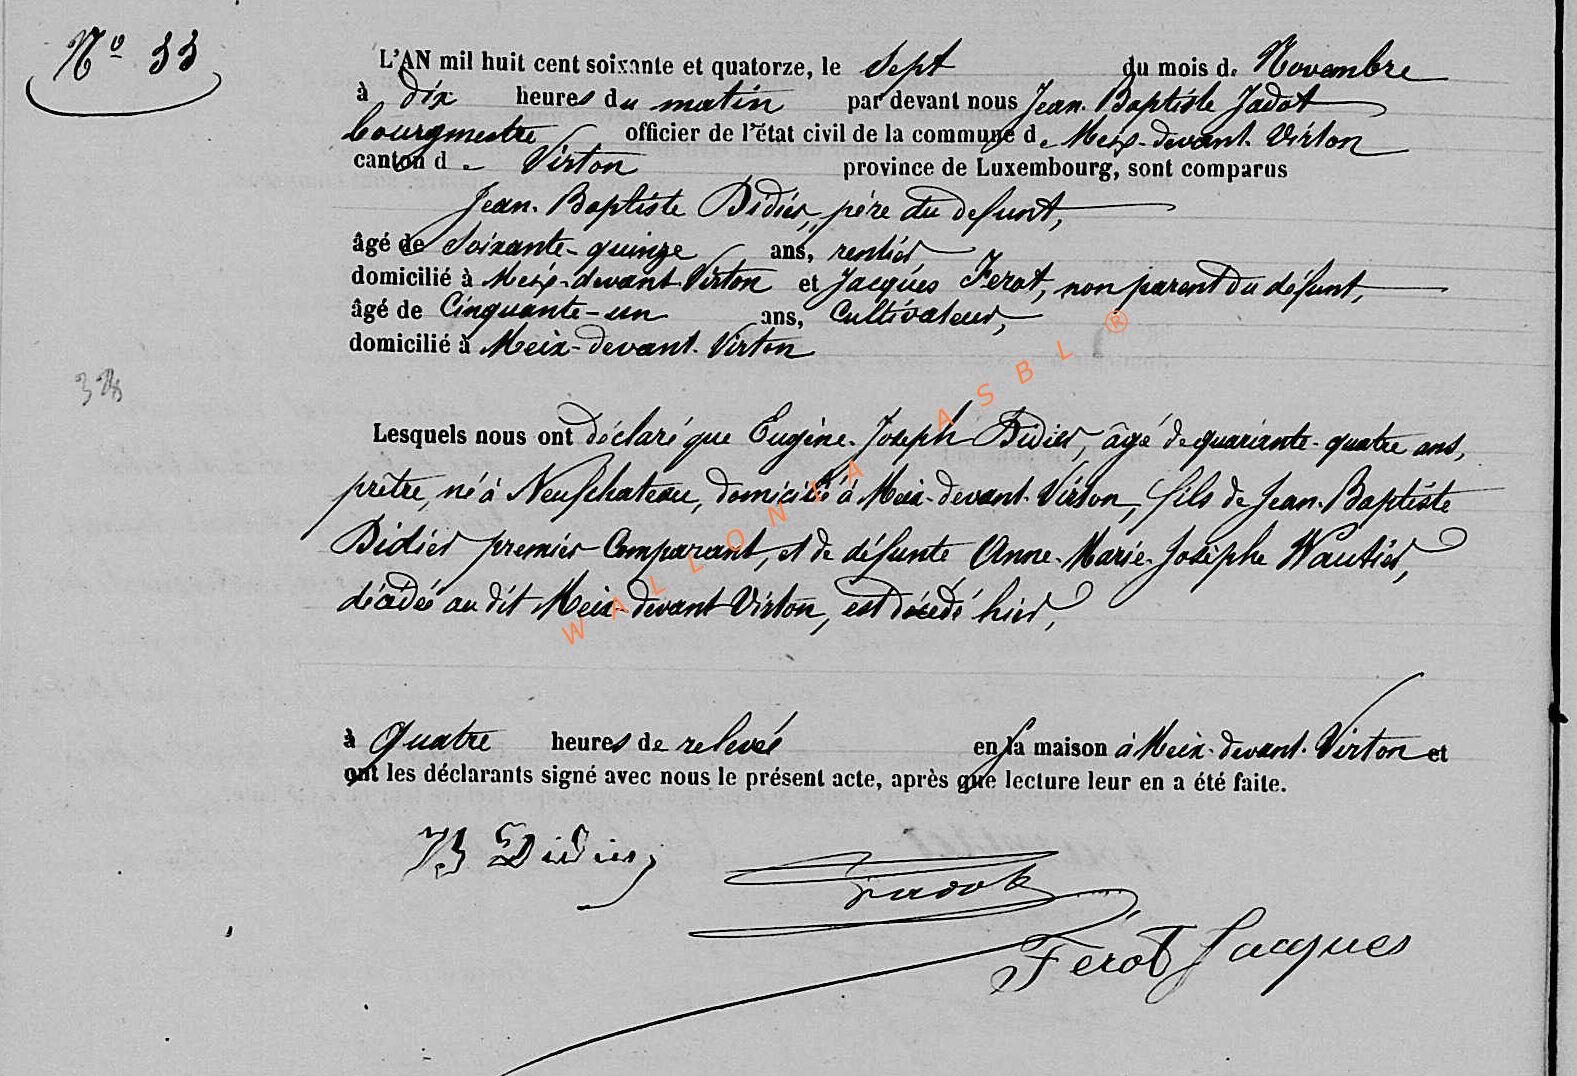 Nº 33
L'AN mil huit cent soixante et quatorze, le sept du mois de Novembre
à dix heures du matin par devant nous Jean-Baptiste Jadot
bourgmestre officier de l'état civil de la commune de Meix-devant-Virton
canton de Virton province de Luxembourg, sont comparus
Jean-Baptiste Didier, père du defunt,
âgé de soixante-quinze ans, rentier
domicilié à Meix-devant-Virton et Jacques Ferot, non parent du défunt,
âgé de Cinquante-un ans, Cultivateur,
domicilié à Meix-devant-Virton
328
Lesquels nous ont déclaré que Eugène-Joseph Didier, âgé de quarante-quatre ans,
prêtre, né à Neufchateau, domicilié à Meix-devant-Virton, fils de Jean-Baptiste
Didier premier Comparant, et de défunte Anne-Marie-Josèphe Wautier,
décédée au dit Meix-devant Virton, est décédé hier,
à quatre heures de relevée en sa maison à Meix-devant-Virton et
ont les déclarants signé avec nous le présent acte, après que lecture leur en a été faite.
JB Didier
Jadot
Férot Jacques
WALLONIA ASBL ®